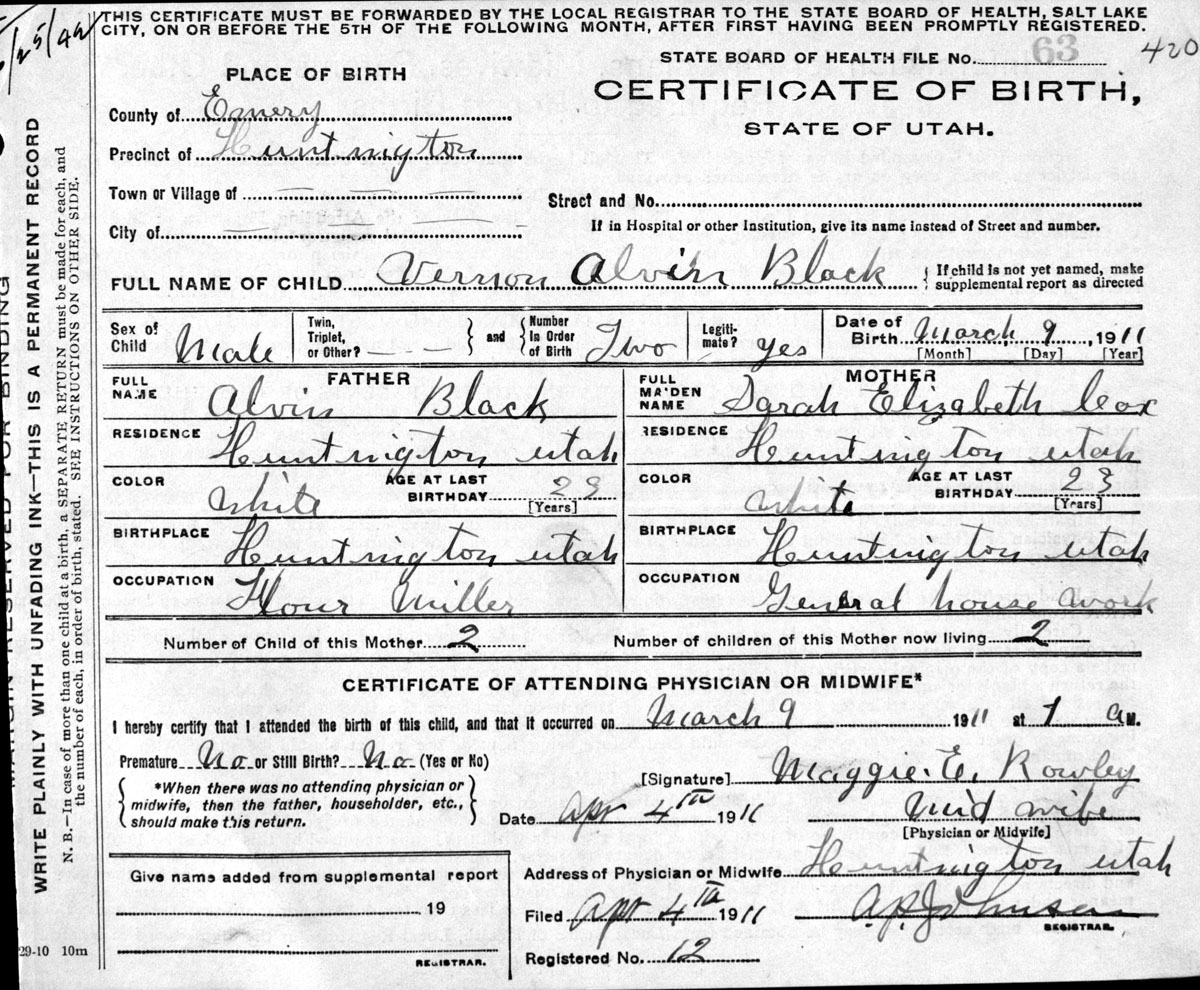 THIS CERTIFICATE MUST BE FORWARDED BY THE LOCAL REGISTRAR TO THE STATE BOARD OF HEALTH, SALT LAKE
CITY, ON OR BEFORE THE 5TH OF THE FOLLOWING MONTH, AFTER FIRST HAVING BEEN PROMPTLY REGISTERED.
STATE BOARD OF HEALTH FILE No. 63
420
PLACE OF BIRTH
CERTIFICATE OF BIRTH,
STATE OF UTAH.
County of Emery
Precinct of Huntington
Town or Village of
Street and No.
City of
If in Hospital or other Institution, give its name instead of Street and number.
FULL NAME OF CHILD Vernon Alvin Black
{ If child is not yet named, make
supplemental report as directed
Sex of Child Male
Twin, Triplet, or Other? } and { Number In Order of Birth Two
Legiti-mate? yes
Date of Birth March 9, 1911
[Month] [Day] [Year]
FATHER
FULL NAME Alvin Black
RESIDENCE Huntington utah
COLOR white
AGE AT LAST BIRTHDAY 23
[Years]
BIRTHPLACE Huntington utah
OCCUPATION Flour Miller
MOTHER
FULL MAIDEN NAME Sarah Elizabeth Cox
RESIDENCE Huntington utah
COLOR white
AGE AT LAST BIRTHDAY 23
[Years]
BIRTHPLACE Huntington utah
OCCUPATION General house work
Number of Child of this Mother 2 Number of children of this Mother now living 2
CERTIFICATE OF ATTENDING PHYSICIAN OR MIDWIFE*
I hereby certify that I attended the birth of this child, and that it occurred on March 9 1911 at 1 a M.
Premature No or Still Birth? No (Yes or No)
{ *When there was no attending physician or
midwife, then the father, householder, etc.,
should make this return. }
[Signature] Maggie. E. Rowley
Date Apr 4th 1911 Mid wife
[Physician or Midwife]
Give name added from supplemental report
19
REGISTRAR.
Address of Physician or Midwife Huntington utah
Filed Apr 4th 1911
REGISTRAR.
Registered No. 12
29-10 10m
WRITE PLAINLY WITH UNFADING INK—THIS IS A PERMANENT RECORD
N. B.—In case of more than one child at a birth, a SEPARATE RETURN must be made for each, and
the number of each, in order of birth, stated. SEE INSTRUCTIONS ON OTHER SIDE.